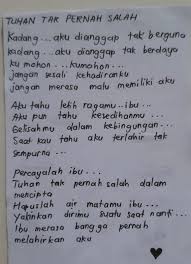 TUHAN TAK PERNAH SALAH
Kadang... aku dianggap tak berguna
kadang... aku dianggap tak berdaya
ku mohon... kumohon...
jangan sesali kehadiranku
jangan merasa malu memiliki aku
Aku tahu letih ragamu ibu...
Aku pun tahu kesedihanmu...
Gelisahmu dalam kebingungan...
Saat kau tahu aku terlahir tak
sempurna...
Percayalah ibu...
Tuhan tak pernah salah dalam
mencipta
Hapuslah air matamu ibu...
Yakinkan dirimu suatu saat nanti...
Ibu merasa bangga pernah
melahirkan aku